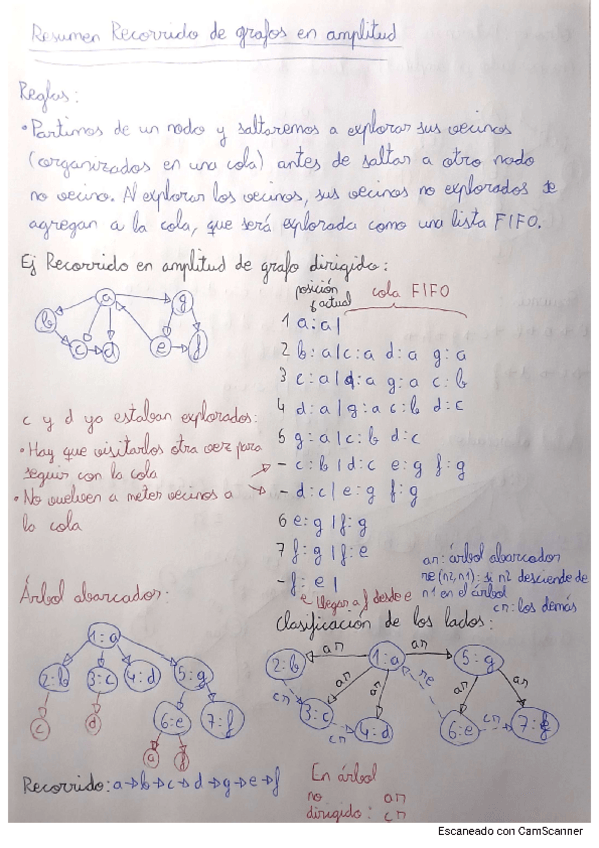 Resumen Recorrido de grafos en amplitud
Reglas:
• Partimos de un nodo y saltaremos a explorar sus vecinos
(organizados en una cola) antes de saltar a otro nodo
no vecino. Al explorar los vecinos, sus vecinos no explorados se
agregan a la cola, que será explorada como una lista FIFO.
Ej Recorrido en amplitud de grafo dirigido:
a
g
b
c
d
e
f
posición actual
cola FIFO
1 a:a|
2 b:a|c:a d:a g:a
3 c:a|d:a g:a c:b
4 d:a|g:a c:b d:c
5 g:a|c:b d:c
- c:b|d:c e:g f:g
- d:c|e:g f:g
6 e:g|f:g
7 f:g|f:e
- f:e|
llegar a f desde e
c y d ya estaban explorados:
• Hay que visitarlos otra vez para
seguir con la cola
• No vuelven a meter vecinos a
la cola
an: árbol abarcador
re(n2,n1): si n2 desciende de
n1 en el árbol
cn: los demás
Árbol abarcador:
1:a
2:b 3:c 4:d 5:g
c d 6:e 7:f
a f
Recorrido: a→b→c→d→g→e→f
Clasificación de los lados:
2:b an 1:a an 5:g
cn an an re an an
3:c cn 4:d 6:e cn 7:f
En árbol
no an
dirigido: cn
Escaneado con CamScanner